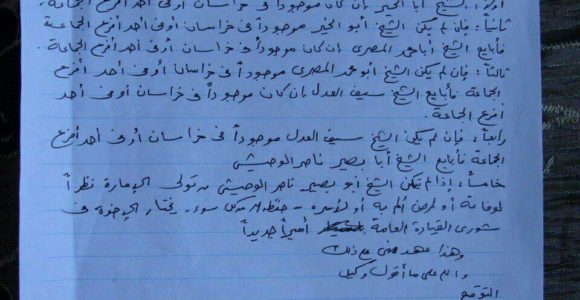 أولاً: الشيخ أبا الخير إن كان موجوداً في خراسان أو في أحد أفرع الجماعة.
ثانياً: فإن لم يكن الشيخ أبو الخير موجوداً في خراسان أو في أحد أفرع الجماعة
فأبايع الشيخ أبا محمد المصري إن كان موجوداً في خراسان أو في أحد أفرع الجماعة.
ثالثاً: فإن لم يكن الشيخ أبو محمد المصري موجوداً في خراسان أو في أحد أفرع
الجماعة فأبايع الشيخ سيف العدل إن كان موجوداً في خراسان أو في أحد
أفرع الجماعة.
رابعاً: فإن لم يكن الشيخ سيف العدل موجوداً في خراسان أو في أحد أفرع
الجماعة فأبايع الشيخ أبا بصير ناصر الوحيشي
خامساً: إذا لم يتمكن الشيخ أبو بصير ناصر الوحيشي من تولي الإمارة نظراً
لوفاته أو لمرض ألم به أو لأسره - حفظه الله من كل سوء - يختار الإخوة في
شورى القيادة العامة أميراً جديداً
وهذا عهد مني على ذلك
والله على ما أقول وكيل
التوقيع